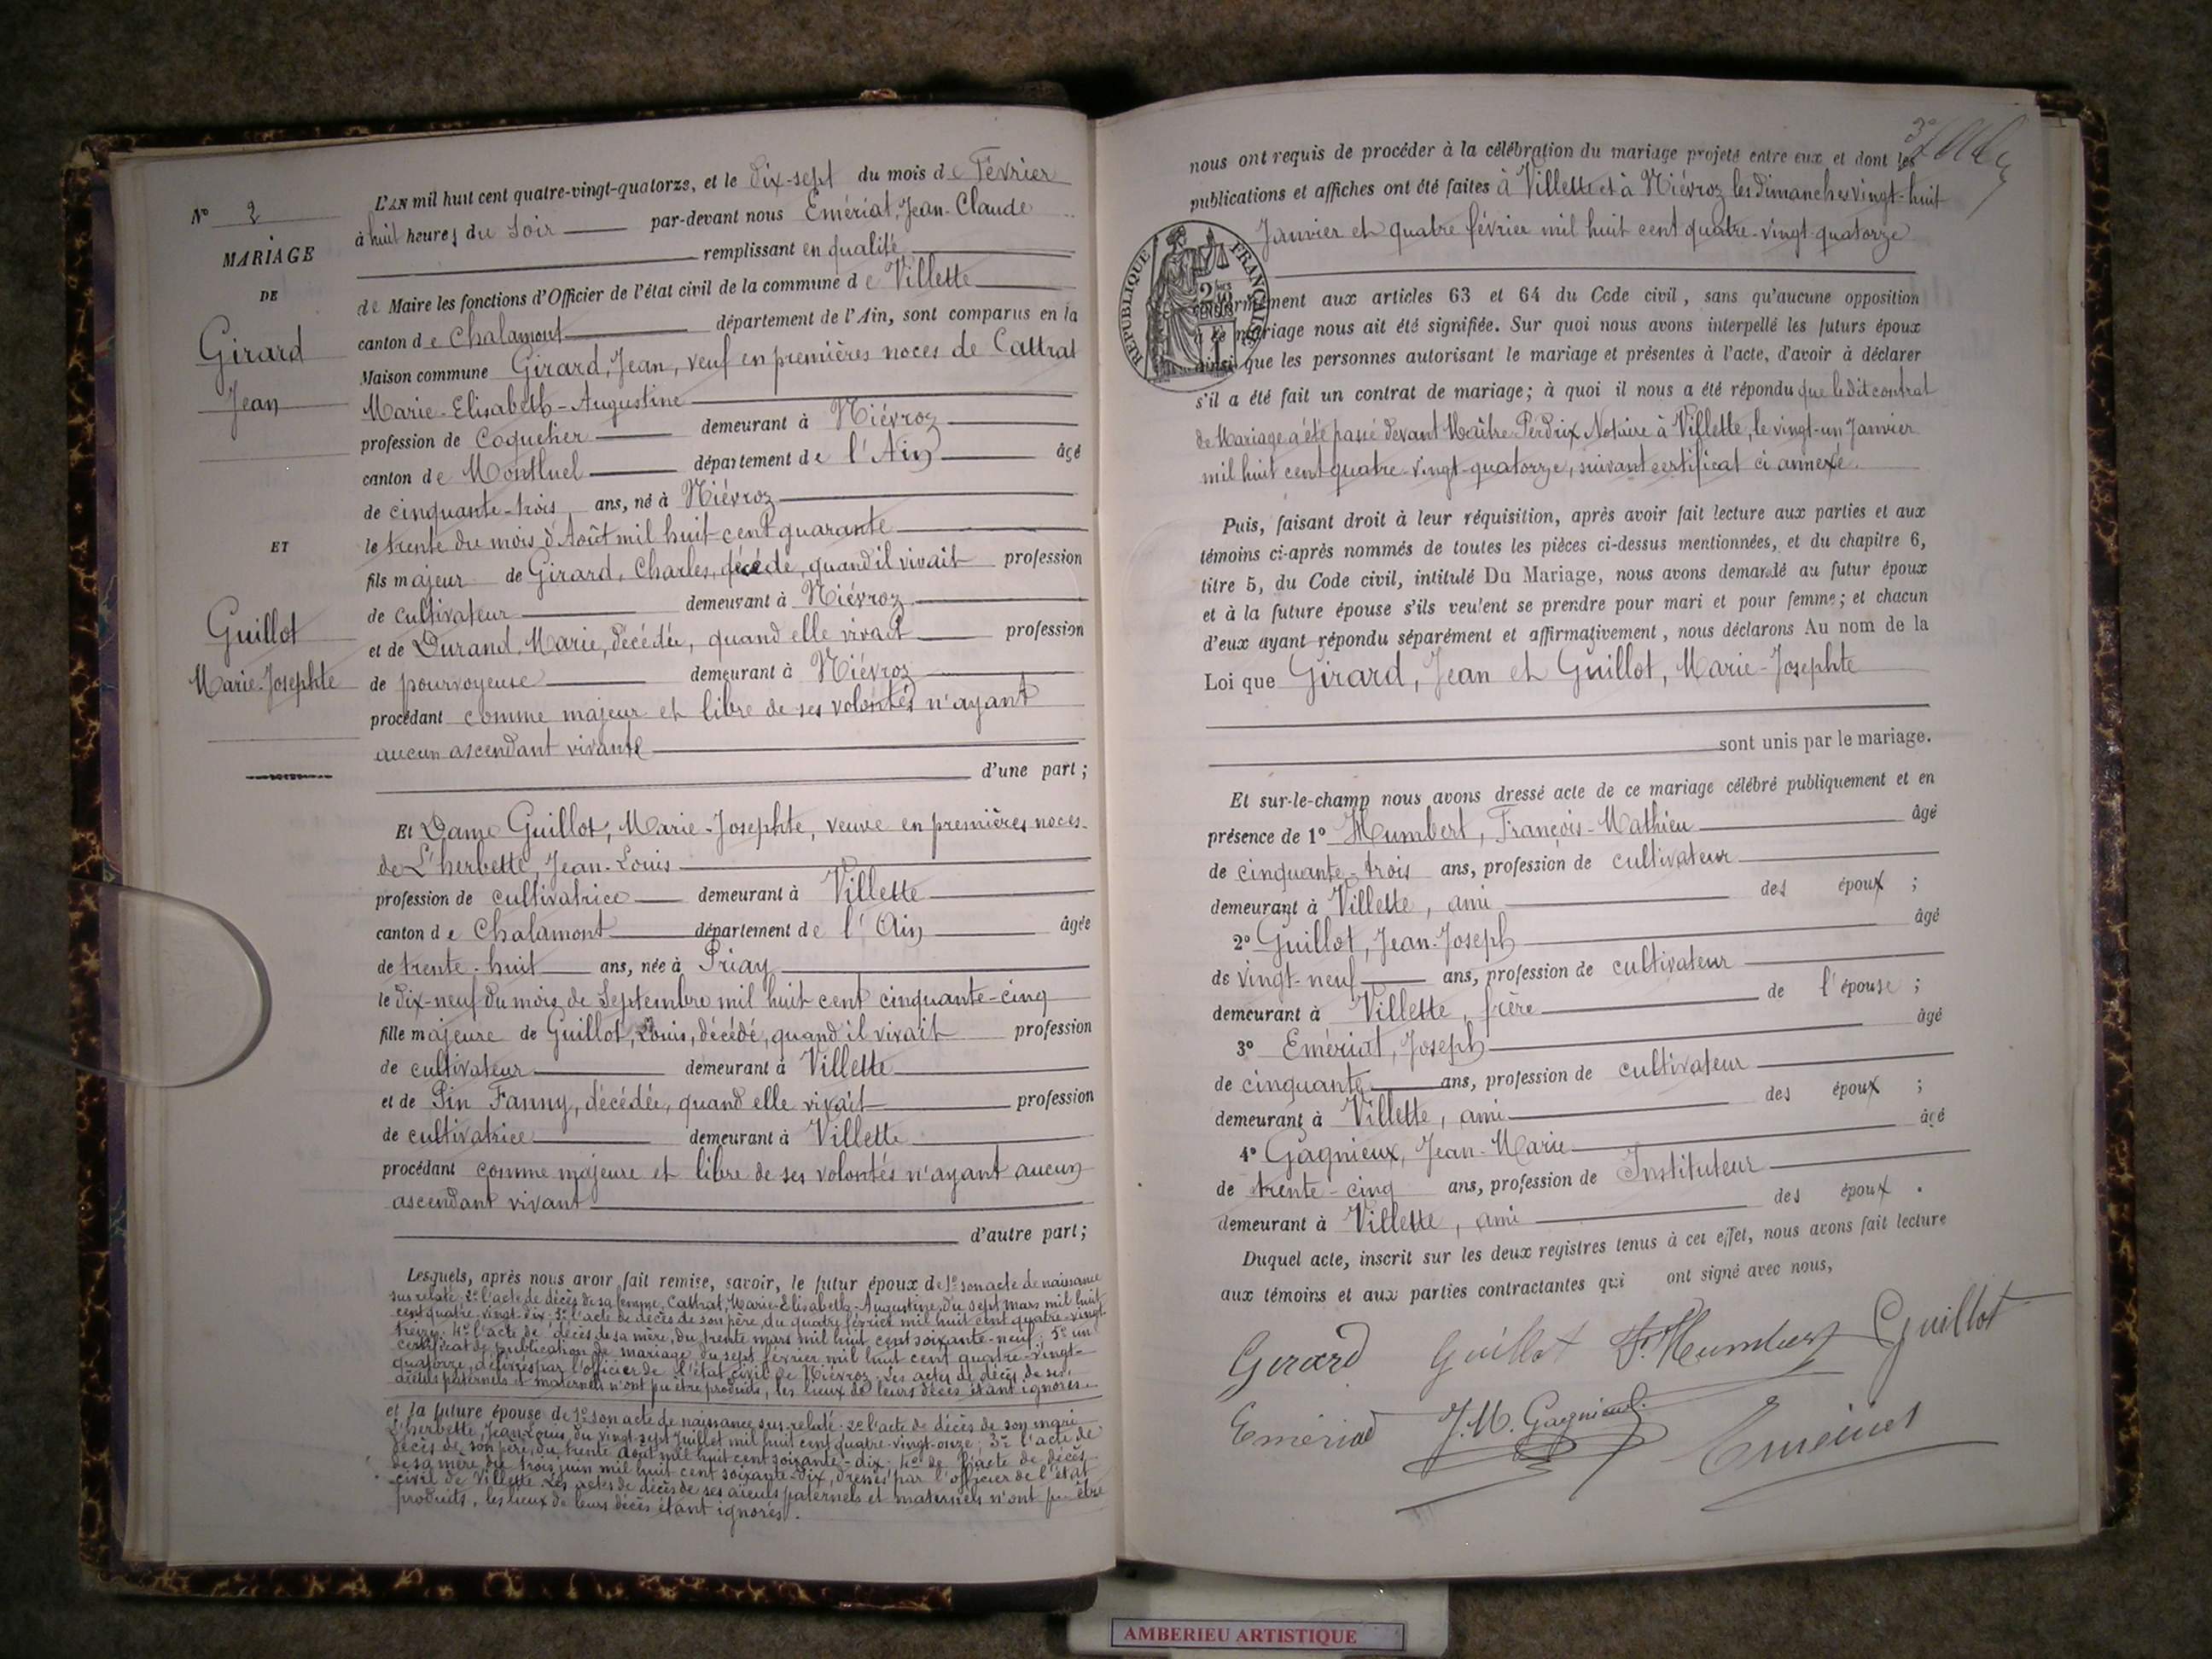 N° 2
MARIAGE
DE
Girard
Jean
ET
Guillot
Marie-Josephte
L'AN mil huit cent quatre-vingt-quatorze, et le dix-sept du mois de Février
à huit heures du Soir par-devant nous Emériat, Jean-Claude
remplissant en qualité
de Maire les fonctions d'Officier de l'état civil de la commune de Villette
canton de Chalamont département de l'Ain, sont comparus en la
Maison commune Girard, Jean, veuf en premières noces de Cattrat
Marie-Elisabeth-Augustine
profession de Coquetier demeurant à Niévroz
canton de Montluel département de l'Ain âgé
de cinquante-trois ans, né à Niévroz
le trente du mois d'Août mil huit cent quarante
fils majeur de Girard, Charles, décédé, quand il vivait profession
de cultivateur demeurant à Niévroz
et de Durand, Marie, décédée, quand elle vivait profession
de pourvoyeuse demeurant à Niévroz
procédant comme majeur et libre de ses volontés n'ayant
aucun ascendant vivant
d'une part ;
Et Dame Guillot, Marie-Josephte, veuve en premières noces
de L'herbette, Jean-Louis
profession de cultivatrice demeurant à Villette
canton de Chalamont département de l'Ain âgée
de trente-huit ans, née à Priay
le dix-neuf du mois de Septembre mil huit cent cinquante-cinq
fille majeure de Guillot, Louis, décédé, quand il vivait profession
de cultivateur demeurant à Villette
et de Pin Fanny, décédée, quand elle vivait profession
de cultivatrice demeurant à Villette
procédant comme majeure et libre de ses volontés n'ayant aucun
ascendant vivant
d'autre part ;
Lesquels, après nous avoir fait remise, savoir, le futur époux de 1° son acte de naissance
sus relaté; 2° l'acte de décès de sa femme, Cattrat, Marie-Elisabeth-Augustine, du sept mars mil huit
cent quatre-vingt-dix; 3° l'acte de décès de son père, du quatre février mil huit cent quatre-vingt-
treize; 4° l'acte de décès de sa mère, du trente mars mil huit cent soixante-neuf; 5° un
certificat de publication de mariage du sept février mil huit cent quatre-vingt-
quatorze, délivrés par l'officier de l'état civil de Niévroz. Les actes de décès de ses
aïeuls paternels et maternels n'ont pu être produits, les lieux de leurs décès étant ignorés.
et la future épouse de 1° son acte de naissance sus-relaté; 2° l'acte de décès de son mari
L'herbette, Jean-Louis, du vingt-sept Juillet mil huit cent quatre-vingt-onze; 3° l'acte de
décès de son père, du trente Août mil huit cent soixante-dix; 4° de l'acte de décès
de sa mère, du trois juin mil huit cent soixante-dix, dressés par l'officier de l'état
civil de Villette. Les actes de décès de ses aïeuls paternels et maternels n'ont pu être
produits, les lieux de leurs décès étant ignorés.
nous ont requis de procéder à la célébration du mariage projeté entre eux et dont les
publications et affiches ont été faites à Villette et à Niévroz les dimanches vingt-huit
Janvier et quatre février mil huit cent quatre-vingt-quatorze
REPUBLIQUE FRANÇAISE
conformément aux articles 63 et 64 du Code civil, sans qu'aucune opposition
à ce mariage nous ait été signifiée. Sur quoi nous avons interpellé les futurs époux
ainsi que les personnes autorisant le mariage et présentes à l'acte, d'avoir à déclarer
s'il a été fait un contrat de mariage; à quoi il nous a été répondu que le dit contrat
de Mariage a été passé devant Maître Perdrix, Notaire à Villette, le vingt-un Janvier
mil huit cent quatre-vingt-quatorze, suivant certificat ci annexé.
Puis, faisant droit à leur réquisition, après avoir fait lecture aux parties et aux
témoins ci-après nommés de toutes les pièces ci-dessus mentionnées, et du chapitre 6,
titre 5, du Code civil, intitulé Du Mariage, nous avons demandé au futur époux
et à la future épouse s'ils veulent se prendre pour mari et pour femme; et chacun
d'eux ayant répondu séparément et affirmativement, nous déclarons Au nom de la
Loi que Girard, Jean et Guillot, Marie-Josephte
sont unis par le mariage.
Et sur-le-champ nous avons dressé acte de ce mariage célébré publiquement et en
présence de 1° Humbert, François-Mathieu âgé
de cinquante-trois ans, profession de cultivateur
demeurant à Villette, ami des époux ;
2° Guillot, Jean-Joseph âgé
de vingt-neuf ans, profession de cultivateur
demeurant à Villette, frère de l'épouse ;
3° Emériat, Joseph âgé
de cinquante ans, profession de cultivateur
demeurant à Villette, ami des époux ;
4° Gagnieux, Jean-Marie âgé
de trente-cinq ans, profession de Instituteur
demeurant à Villette, ami des époux .
Duquel acte, inscrit sur les deux registres tenus à cet effet, nous avons fait lecture
aux témoins et aux parties contractantes qui ont signé avec nous,
Girard Guillot F. Humbert Guillot
Emériat J.M. Gagnieux Emériat
AMBERIEU ARTISTIQUE